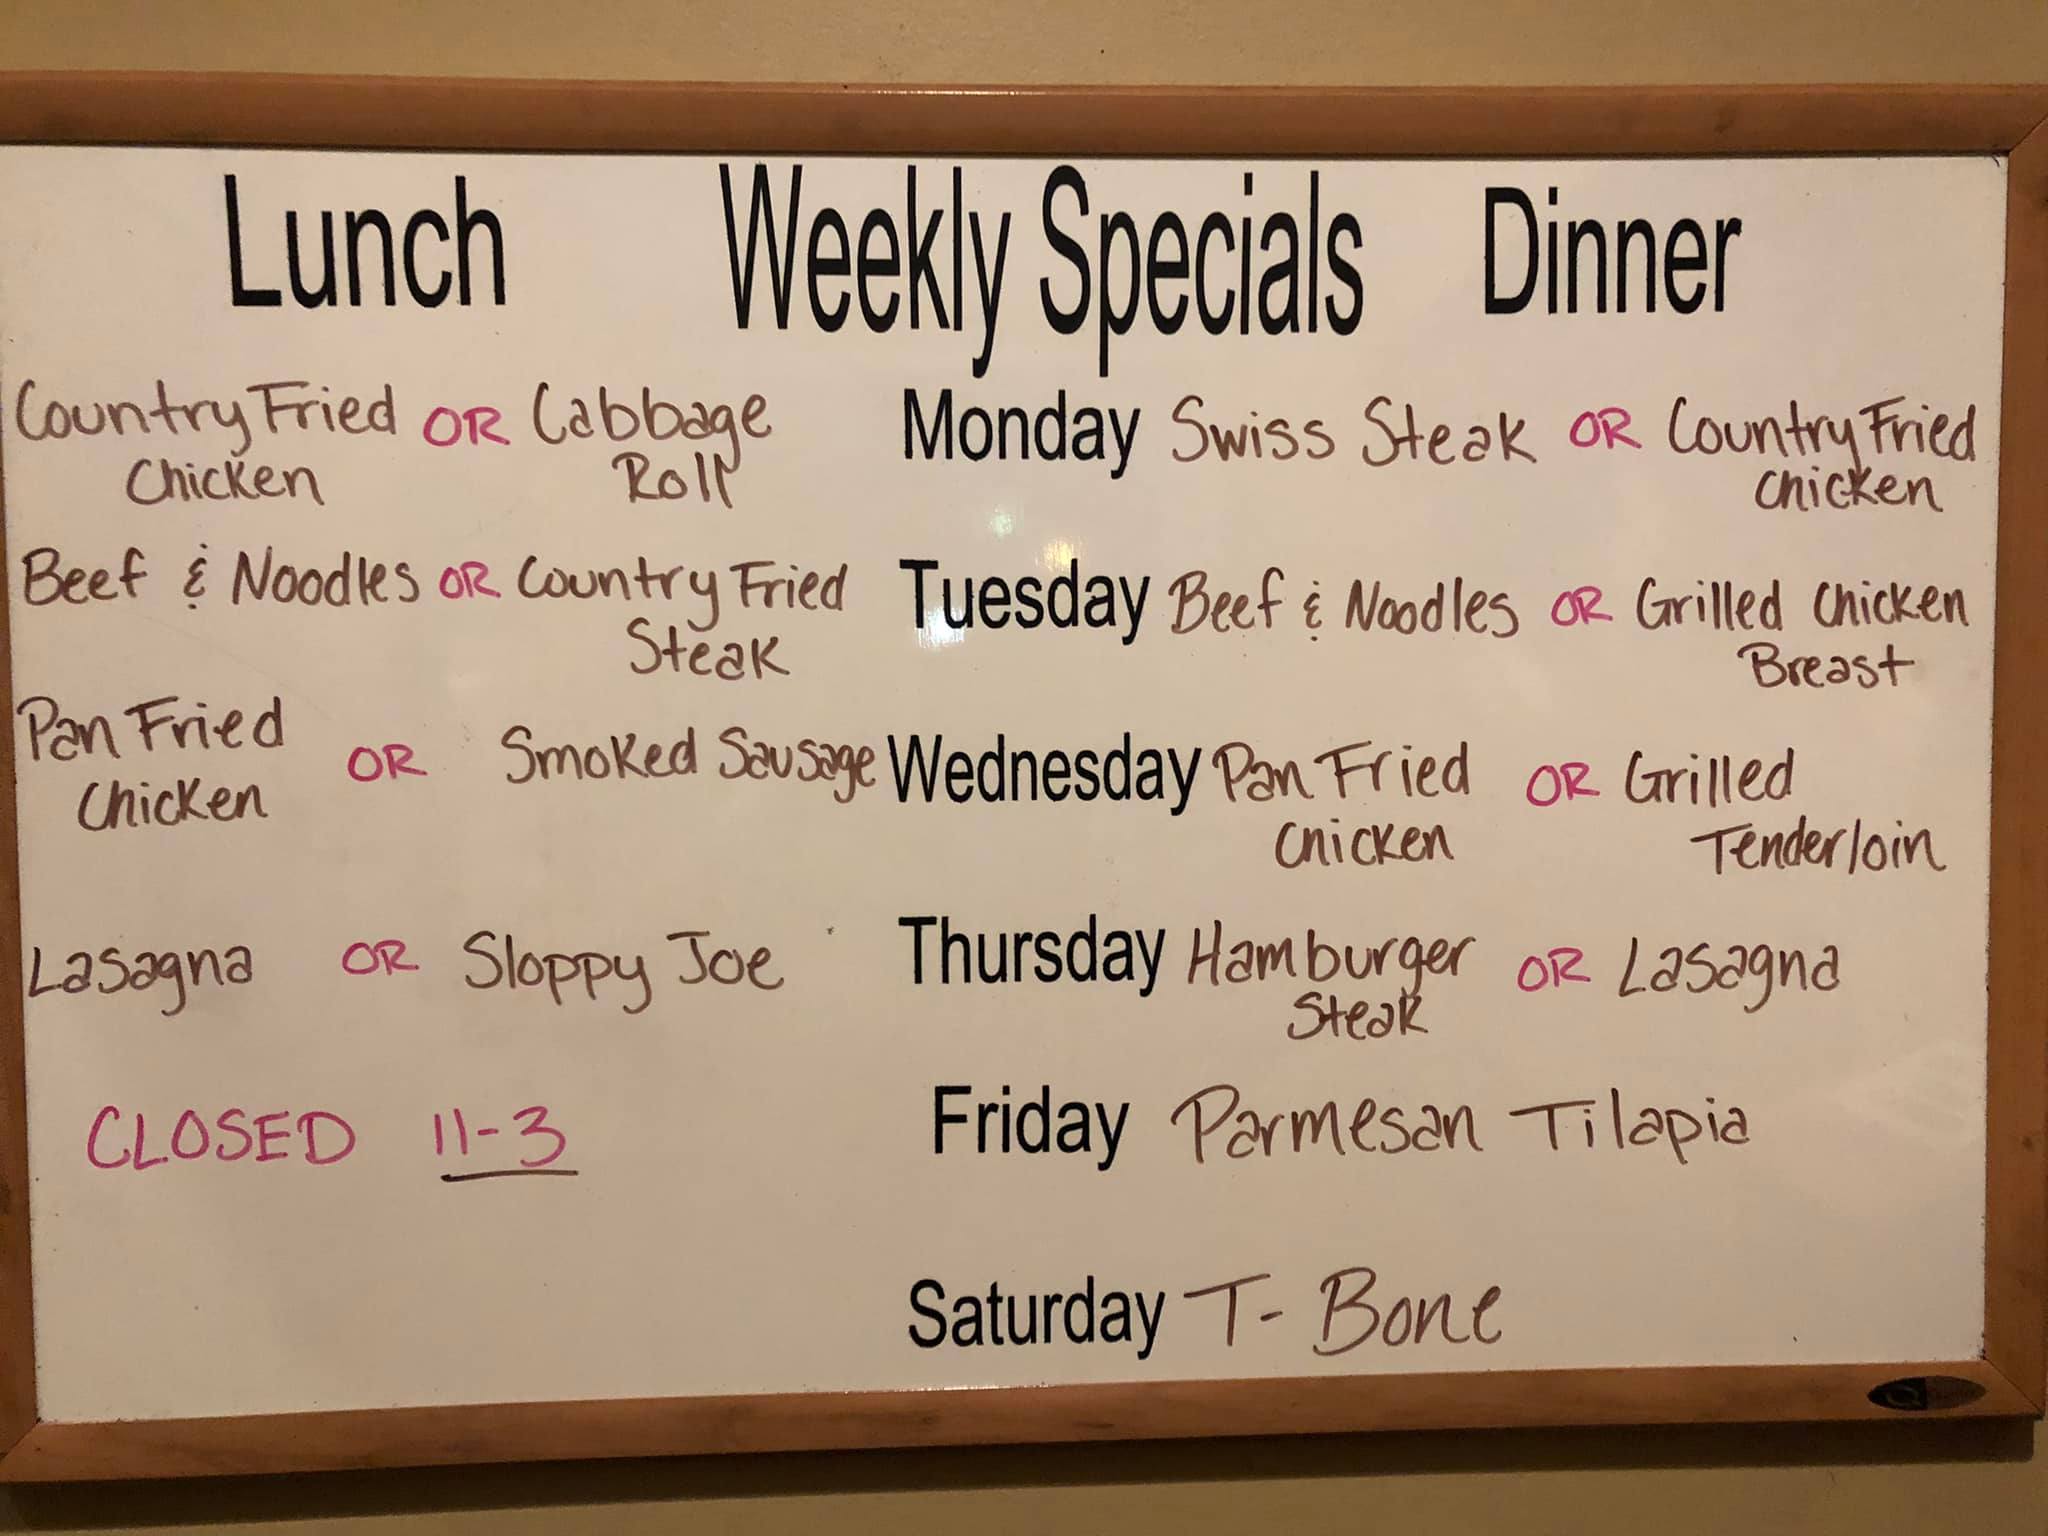 Lunch Weekly Specials Dinner
Country Fried OR Cabbage Monday Swiss Steak OR Country Fried
Chicken Roll Chicken
Beef & Noodles OR Country Fried Tuesday Beef & Noodles OR Grilled Chicken
Steak Breast
Pan Fried OR Smoked Sausage Wednesday Pan Fried OR Grilled
Chicken Chicken Tenderloin
Lasagna OR Sloppy Joe Thursday Hamburger OR Lasagna
Steak
CLOSED 11-3 Friday Parmesan Tilapia
Saturday T-Bone